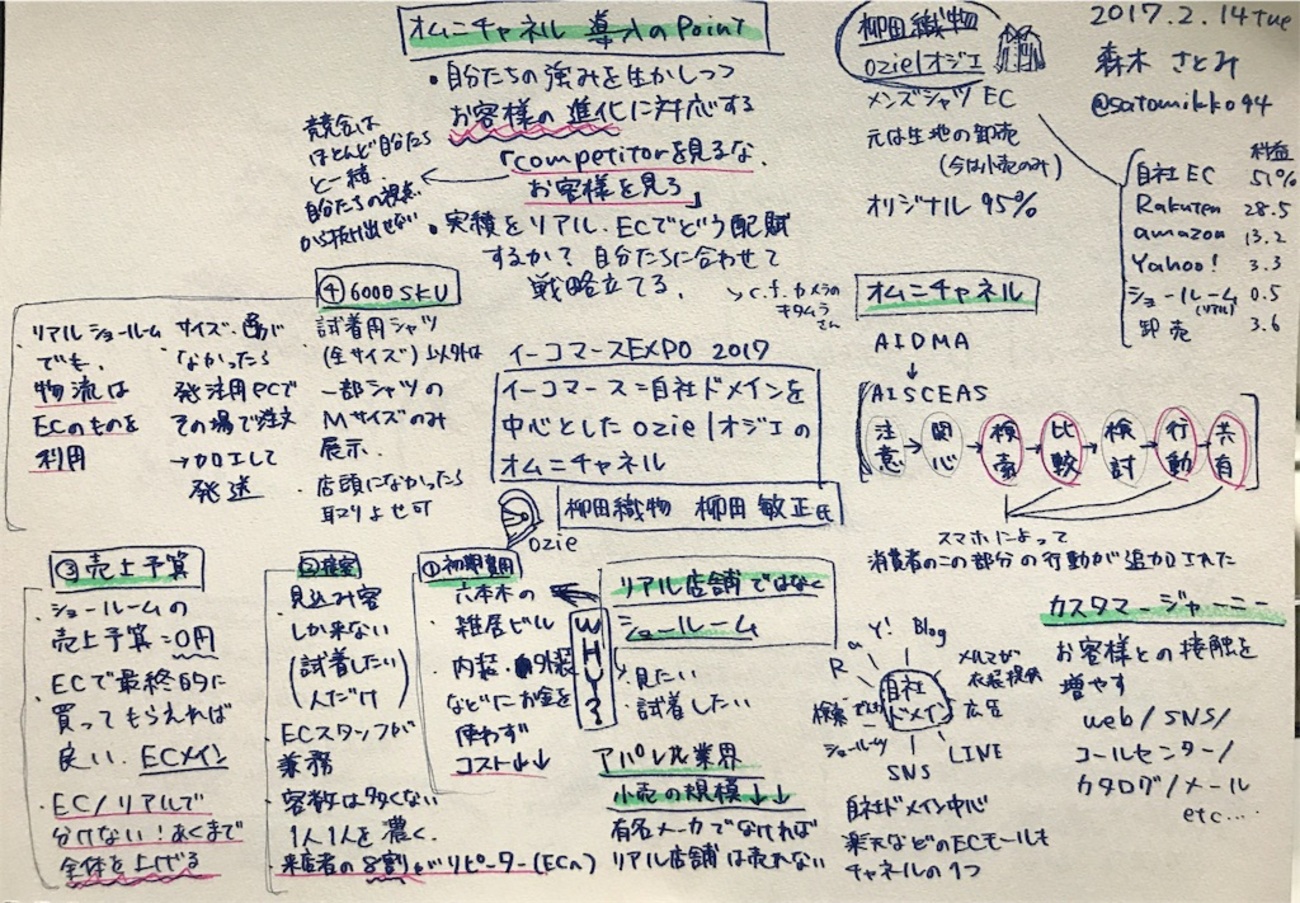 2017.2.14 tue
森木 さとみ
@satomikko94
イーコマースEXPO 2017
イーコマース=自社ドメインを
中心としたozie|オジエの
オムニチャネル
柳田織物 柳田 敏正氏
ozie
柳田織物
ozie|オジエ
メンズシャツ EC
元は生地の卸売
(今は小売のみ)
オリジナル 95%
利益
自社EC 51%
Rakuten 28.5
amazon 13.2
Yahoo! 3.3
ショールーム 0.5
(リアル)
卸売 3.6
オムニチャネル
AIDMA
↓
AISCEAS
注意→関心→検索→比較→検討→行動→共有
スマホによって
消費者のこの部分の行動が追加された
カスタマージャーニー
お客様との接触を
増やす
web/SNS/
コールセンター/
カタログ/メール
etc...
自社
ドメイン
R
a
Y!
Blog
メルマガ
衣装提供
広告
LINE
SNS
ショールーム
検索
自社ドメイン中心
楽天などのECモールも
チャネルの1つ
アパレル業界
小売の規模↓↓
有名メーカでなければ
リアル店舗は売れない
リアル店舗ではなく
ショールーム
・見たい
・試着したい
WHY?
①初期費用
・六本木の
雑居ビル
・内装・外装
などにお金を
使わず
コスト↓↓
②接客
・見込み客
しか来ない
(試着したい
人だけ)
・ECスタッフが
兼務
・客数は多くない
1人1人を濃く.
・来店者の8割がリピーター(ECへ)
③売上予算
・ショールームの
売上予算=0円
・ECで最終的に
買ってもらえれば
良い. ECメイン
・EC/リアルで
分けない!あくまで
全体を上げる
④6000SKU
・試着用シャツ
(全サイズ)以外は
一部シャツの
Mサイズのみ
展示.
・店頭になかったら
取りよせ可
・サイズ・色が
なかったら
発注用PCで
その場で注文
→加工して
発送
・リアルショールーム
でも,
物流は
ECのものを
利用
オムニチャネル 導入のPoint
・自分たちの強みを生かしつつ
お客様の進化に対応する
「competitorを見るな,
お客様を見ろ」
競合は
ほとんど自分たち
と一緒.
自分たちの視点
から抜け出せない
・実績をリアル, ECでどう配賦
するか? 自分たちに合わせて
戦略立てる.
c.f.カメラの
キタムラ
さん